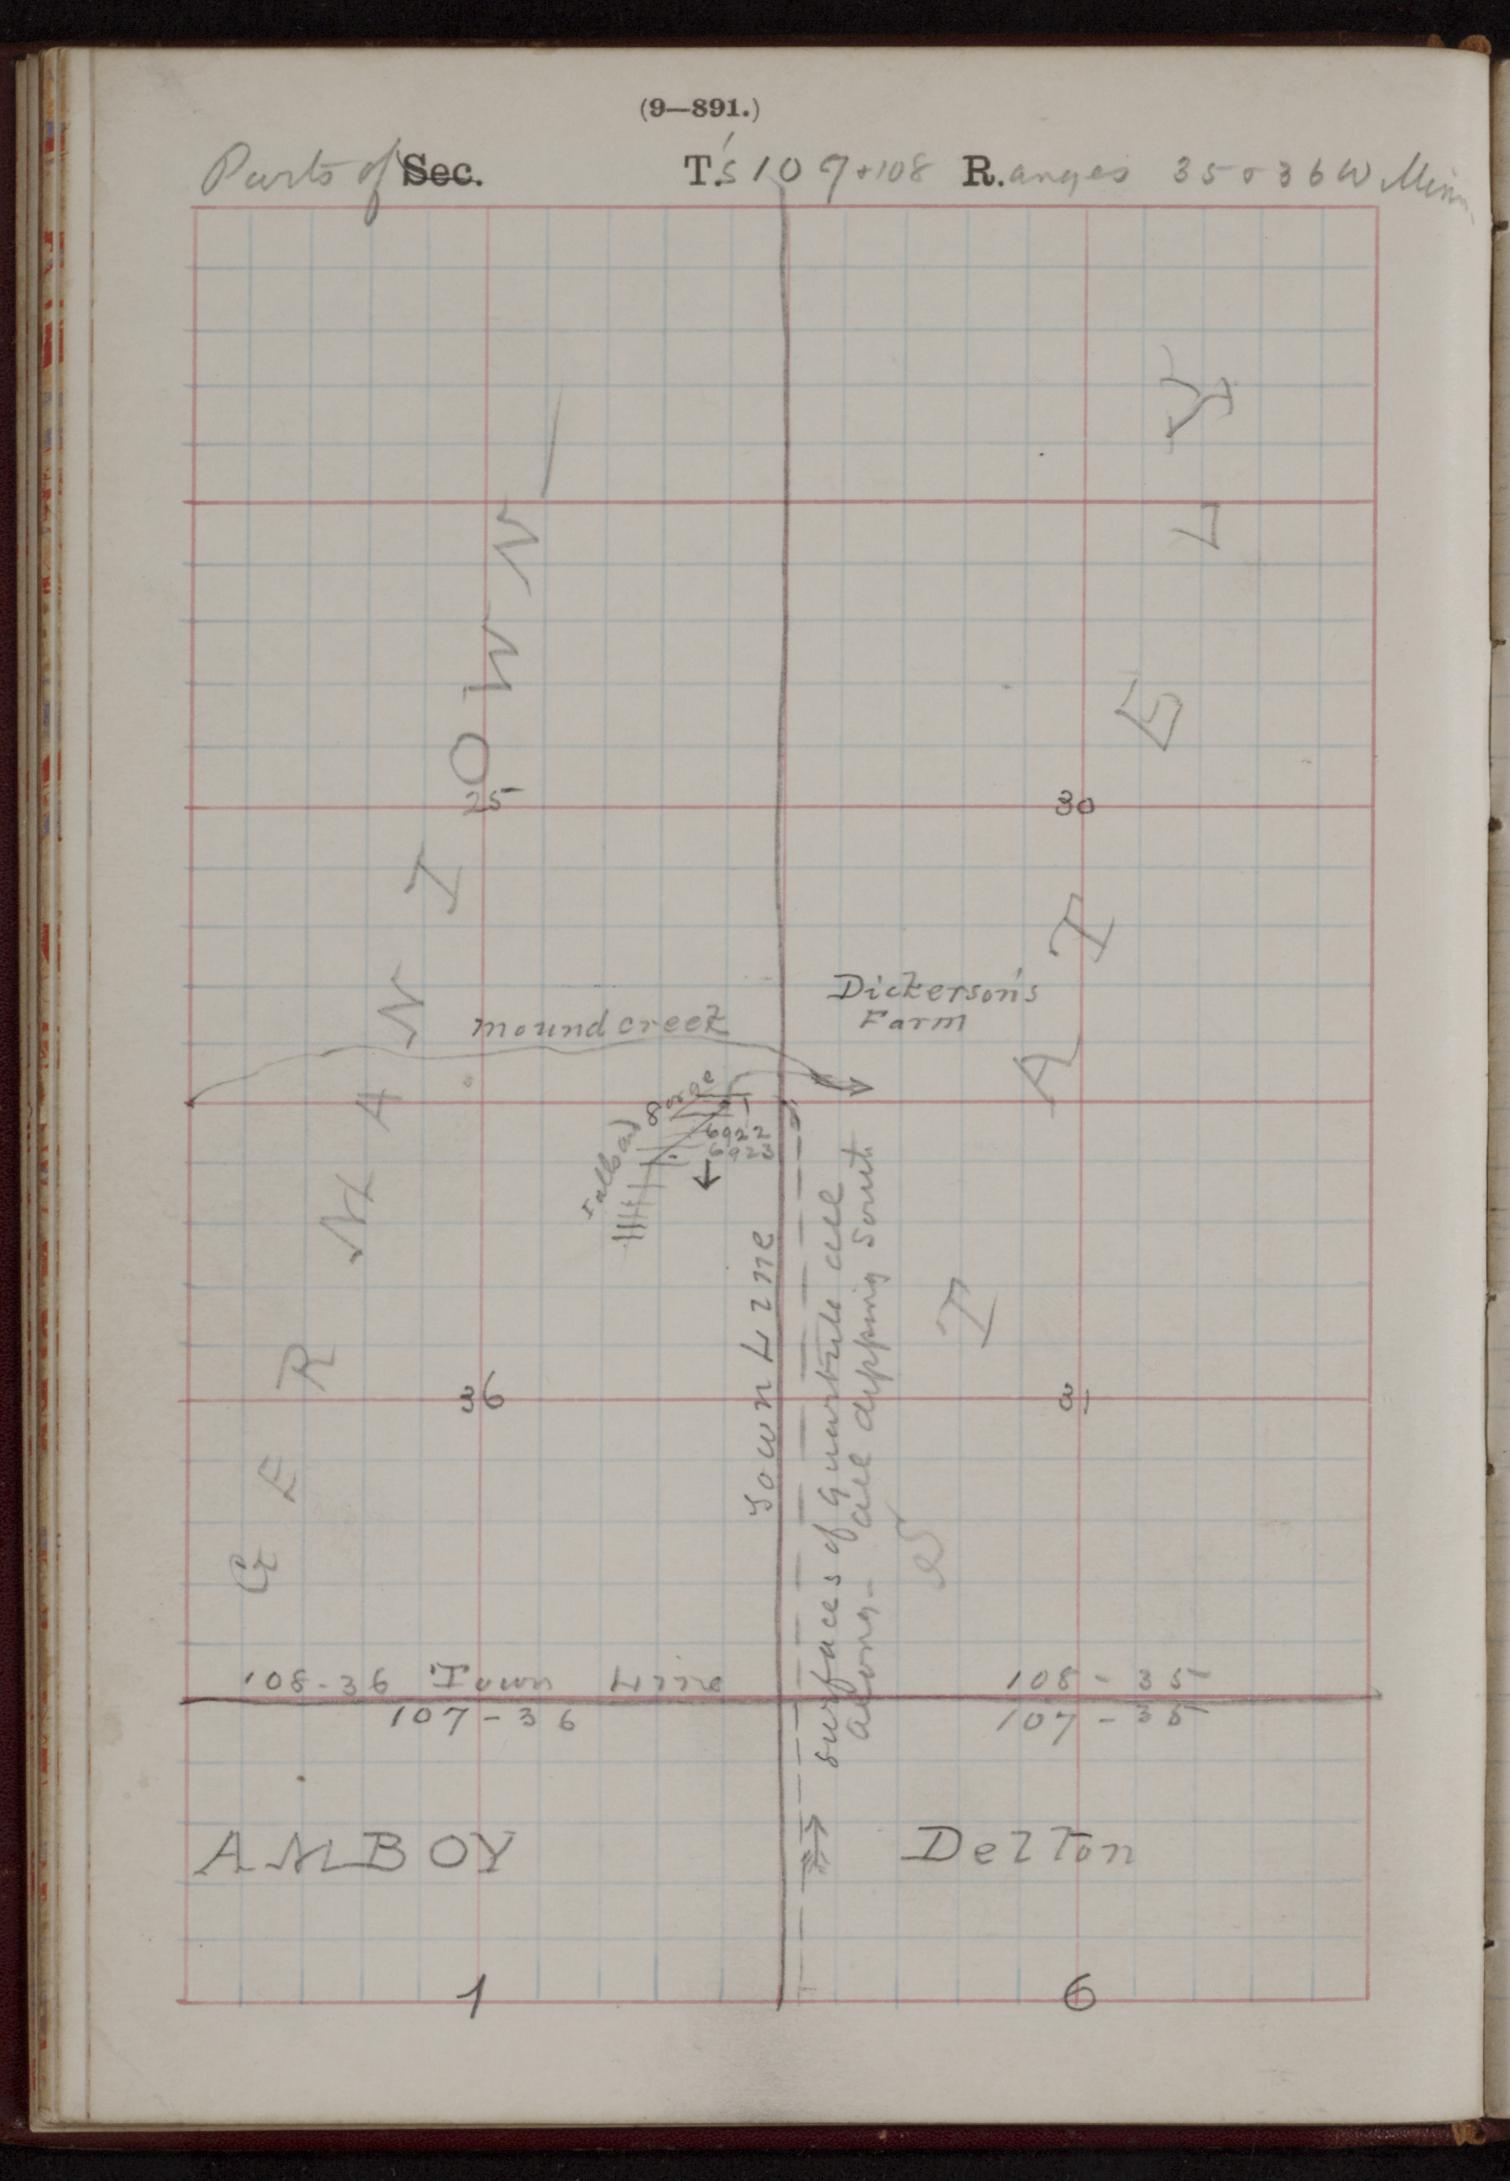 (9—891.)
Parts of Sec. T's 107+108 R.anges 35+36W Minn.
GERMANTOWN
STATELY
25
30
Dickerson's
Farm
mound creek
gorge
Falls
6922
36
31
Town Line
surfaces of quartzite all
along- all dipping South
108-36 Town Line
108-35
107-36
107-35
AMBOY
Delton
1
6